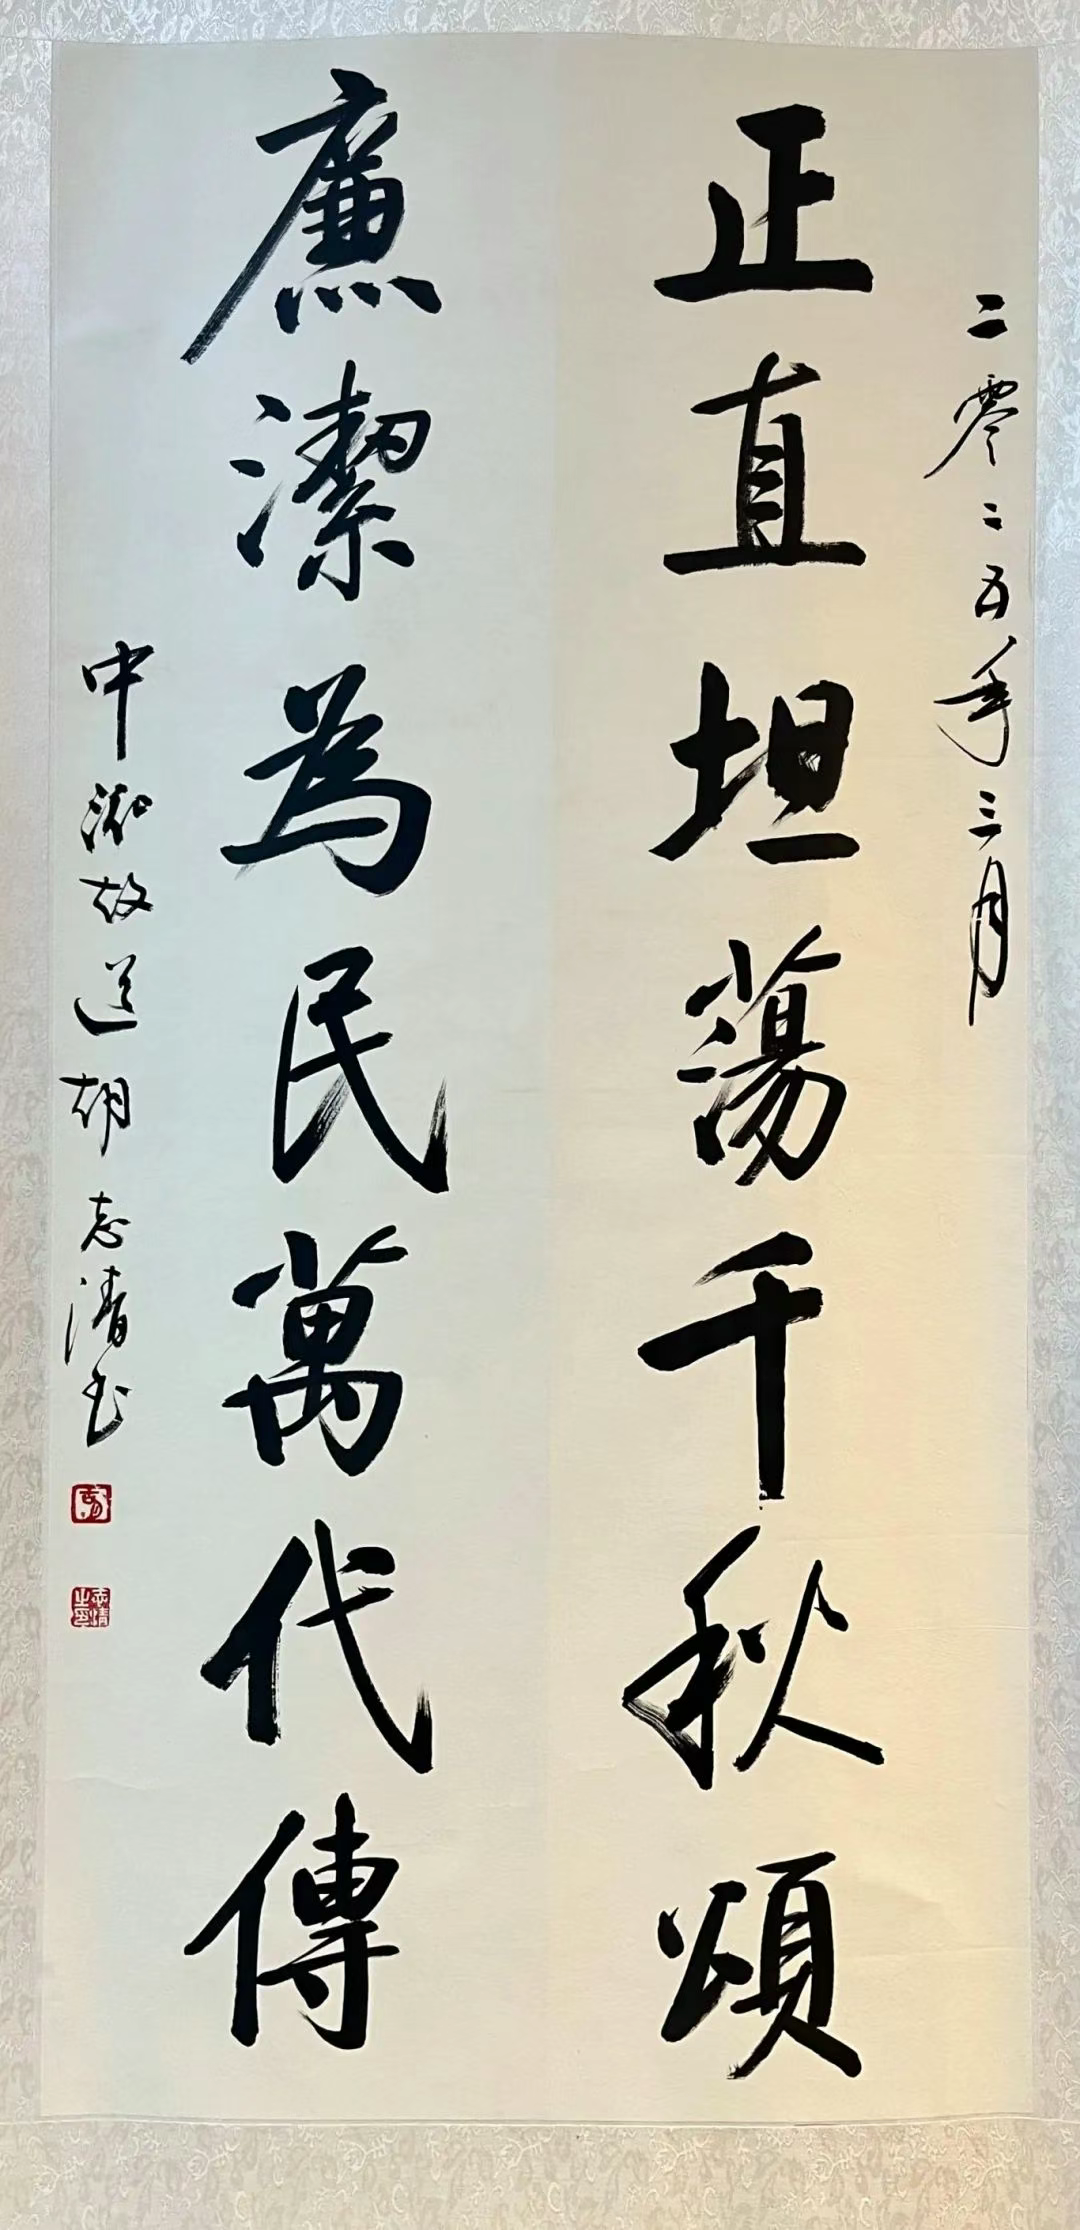 二零二五年三月
正直坦蕩千秋頌
廉潔為民萬代傳
中 故道胡志清书